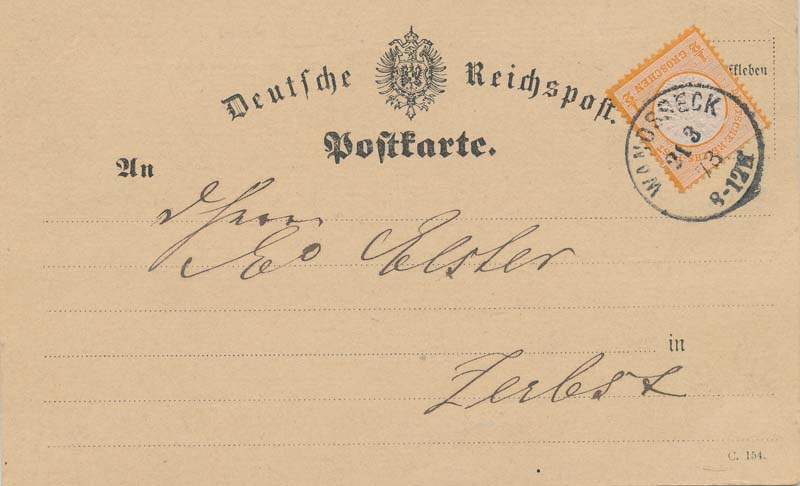 Deutsche Reichspost.
Postkarte.
kleben
½ GROSCHEN ½
WANDSBECK
31 3
73
8-12V
An
Herrn
Elster
in
Zerbst
C. 154.